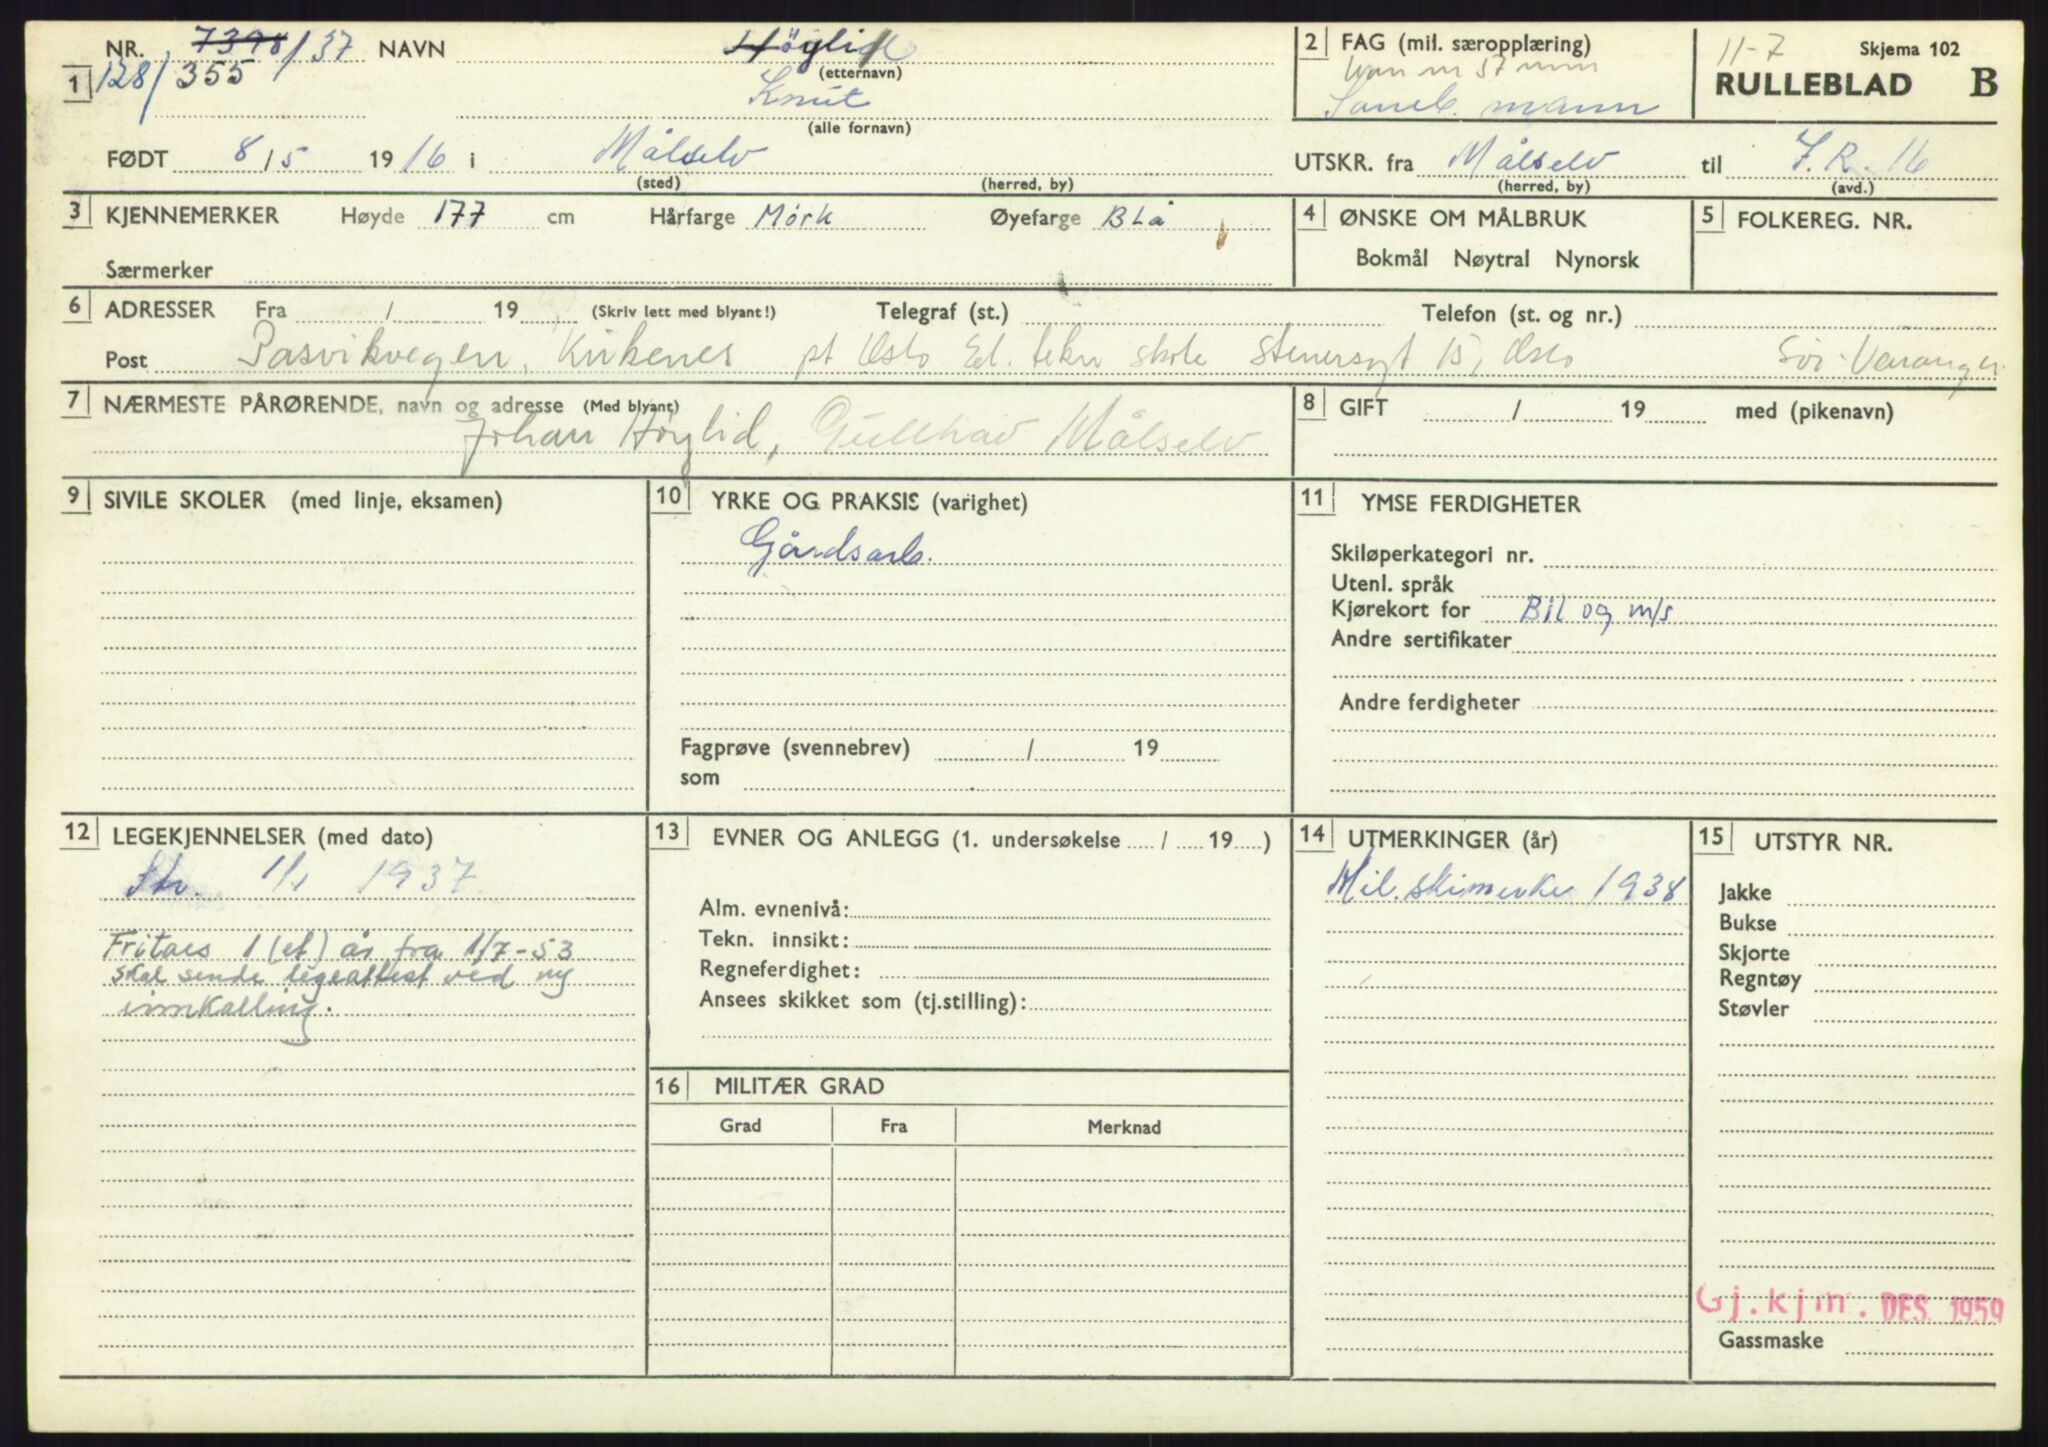 NR. 7398/37 NAVN Höylid
(etternavn)
1 128/355
Knut
(alle fornavn)
FØDT 8/5 1916 i Målselv
(sted) (herred, by)
2 FAG (mil. særopplæring)
Kan m 37 mm
Samb. mann
11-7 Skjema 102
RULLEBLAD B
UTSKR. fra Målselv til I.R. 16
(herred, by) (avd.)
3 KJENNEMERKER Høyde 177 cm Hårfarge Mörk Øyefarge BLå
Særmerker
4 ØNSKE OM MÅLBRUK
Bokmål Nøytral Nynorsk
5 FOLKEREG. NR.
6 ADRESSER Fra / 19 (Skriv lett med blyant!) Telegraf (st.) Telefon (st. og nr.)
Post Pasvikvegen, Kirkenes pt Oslo El. tekn skole Stenersgt 15, Oslo Sör-Varanger
7 NÆRMESTE PÅRØRENDE, navn og adresse (Med blyant)
Johan Höylid, Gullhav Målselv
8 GIFT / 19 med (pikenavn)
9 SIVILE SKOLER (med linje, eksamen)
10 YRKE OG PRAKSIS (varighet)
Gårdsarb.
Fagprøve (svennebrev) / 19
som
11 YMSE FERDIGHETER
Skiløperkategori nr.
Utenl. språk
Kjørekort for Bil og m/s
Andre sertifikater
Andre ferdigheter
12 LEGEKJENNELSER (med dato)
Str. 1/1 1937
Fritaes 1 (et) år fra 1/7-53
skal sende legeattest ved ny
innkalling.
13 EVNER OG ANLEGG (1. undersøkelse / 19 )
Alm. evnenivå:
Tekn. innsikt:
Regneferdighet:
Ansees skikket som (tj.stilling):
14 UTMERKINGER (år)
Mil. skimerke 1938
15 UTSTYR NR.
Jakke
Bukse
Skjorte
Regntøy
Støvler
Gj.kjm. DES. 1959
Gassmaske
16 MILITÆR GRAD
Grad Fra Merknad